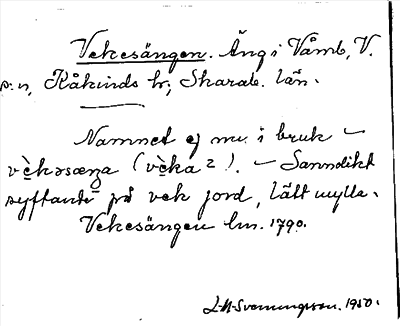 Vekesängen. Äng i Våmb, V.
s:n, Kåkinds hr; Skarab. län.
Namnet ej mr. i bruk –
vèkəsæŋa (vèka 2!). – Sanndikt
syftande på vek jord, lätt mylla.
Vekesängen lm. 1790.
L-H-Svenningsson. 1950.